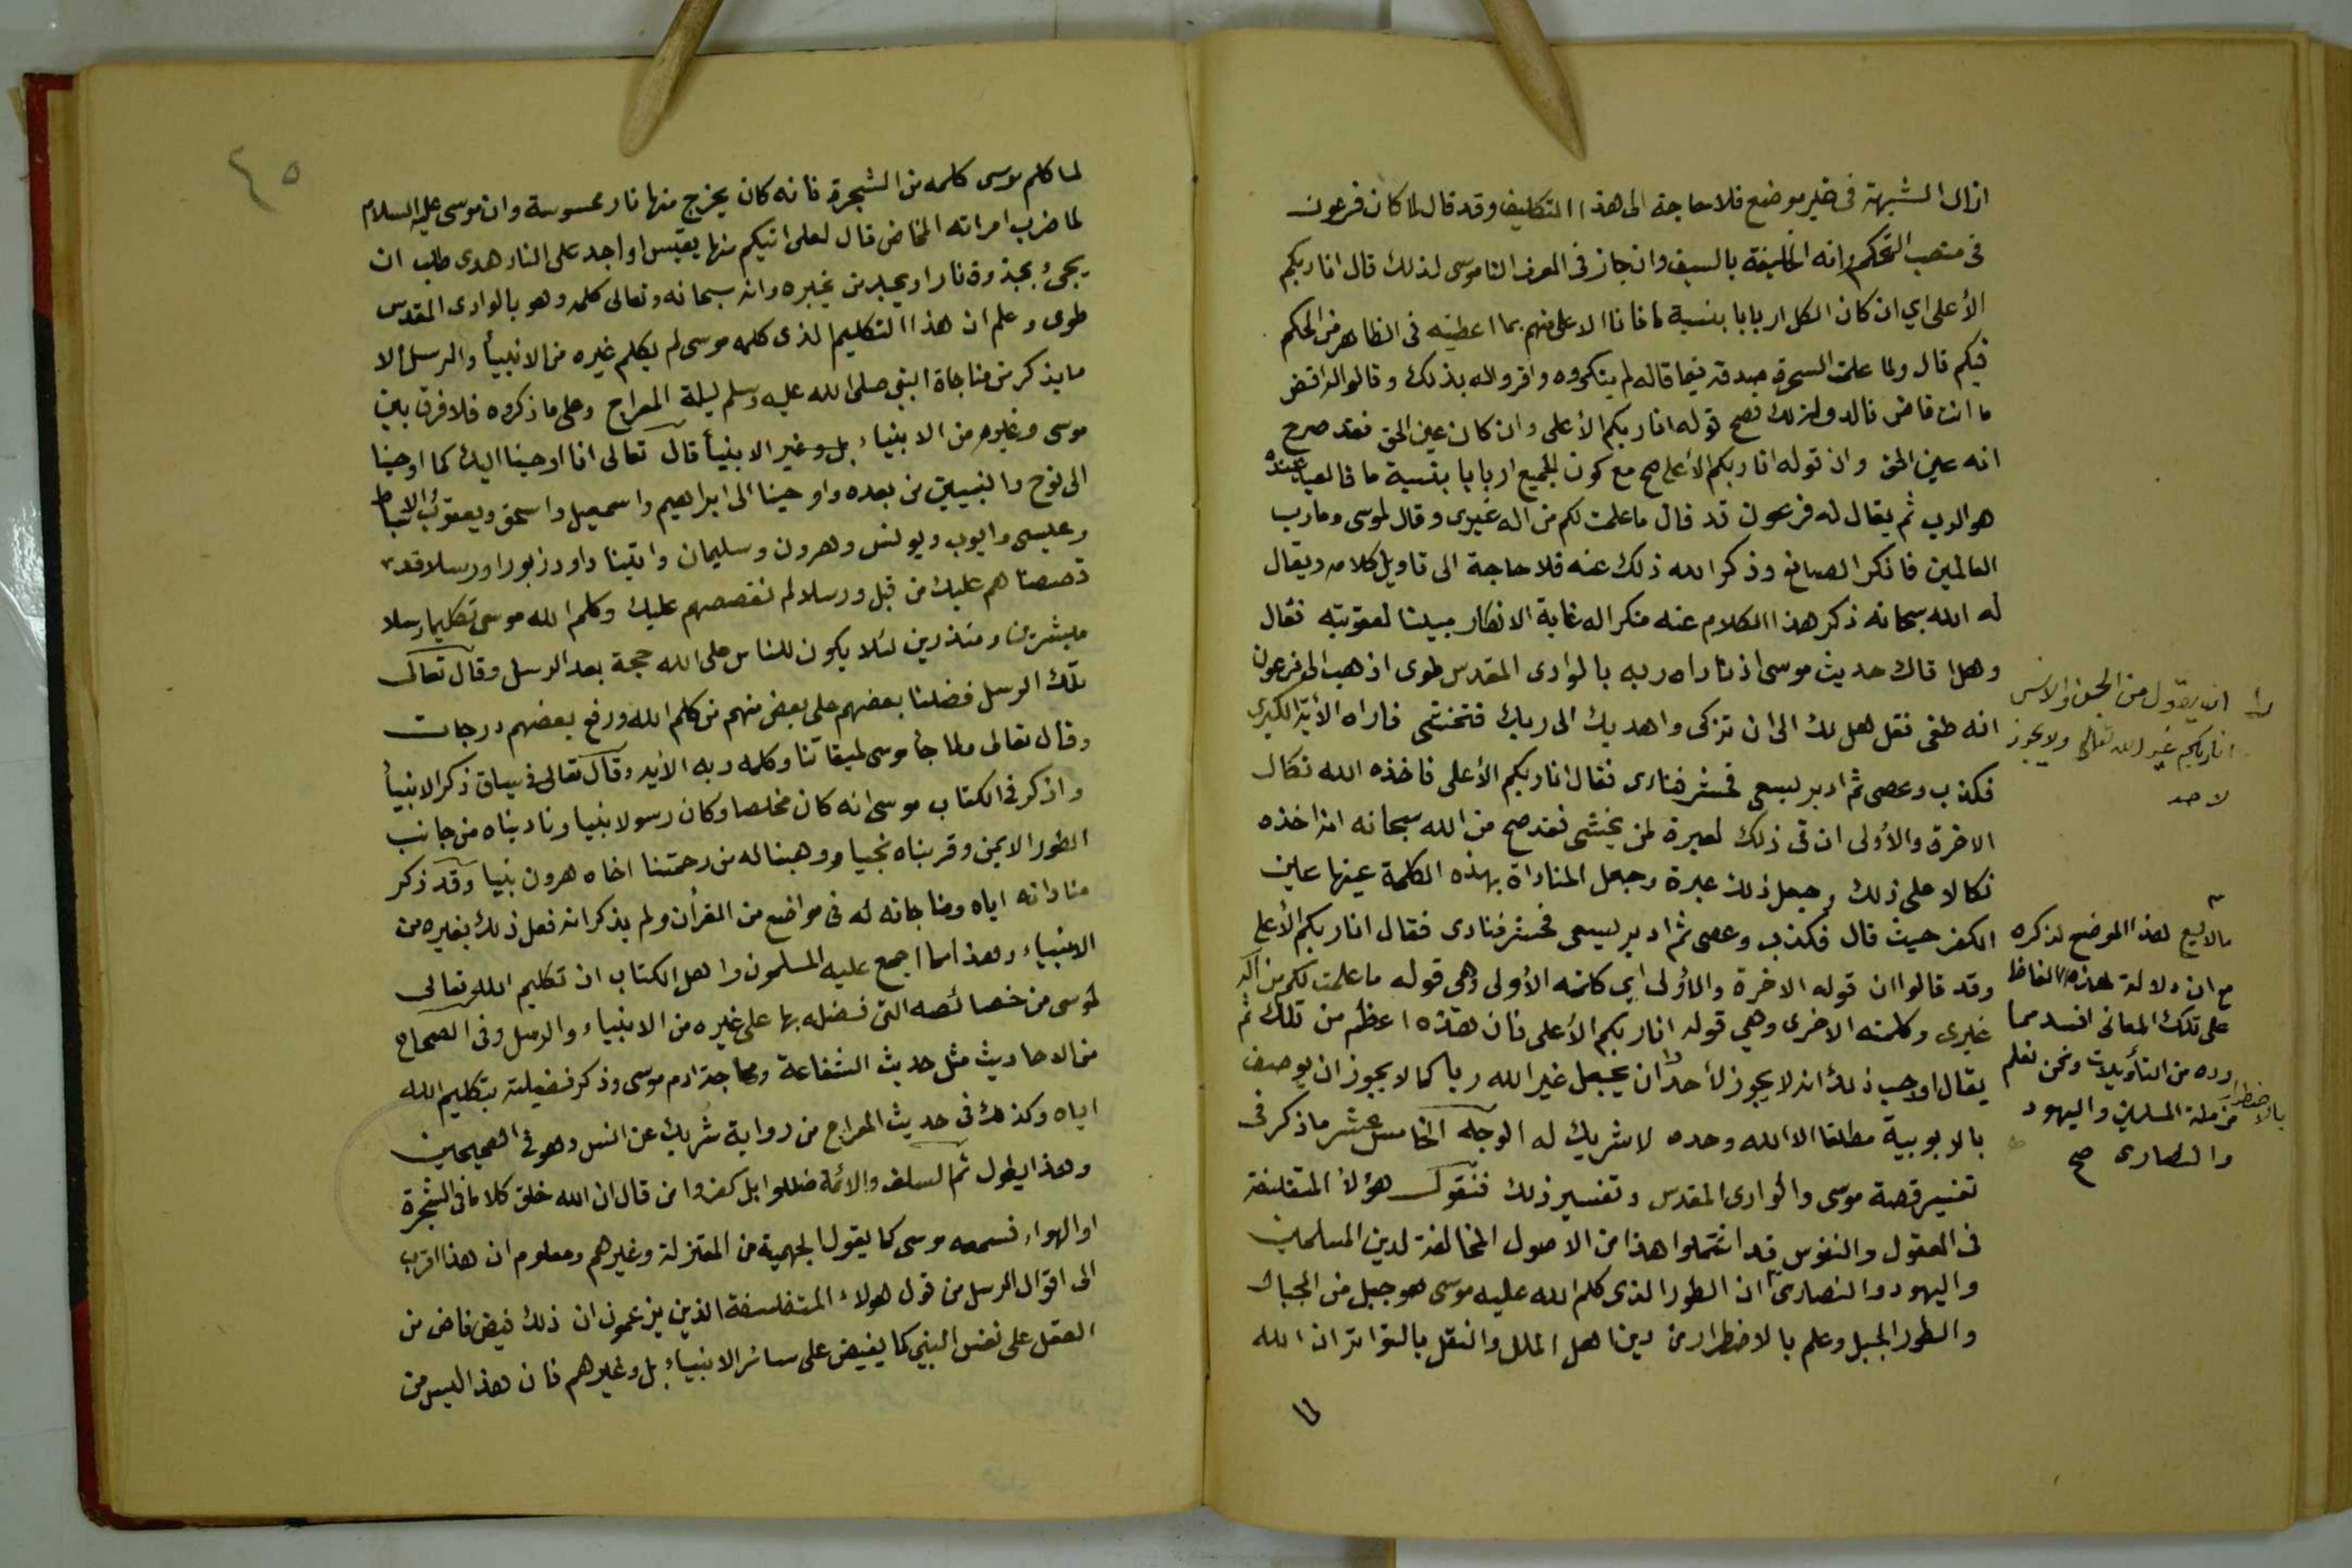 ازال الشبهة في غير موضع فلا حاجة الى هذا التكليف وقد قال لما كان فرعون
في منصب التحكم وانه الخليفة بالسيف وان جاز في العرف الناموسي لذلك قال انا ربكم
الأعلى اي ان كان الكل اربابا بنسبة ما فانا الاعلى منهم بما اعطيته في الظاهر من الحكم
فيكم قال ولما علمت السحرة صدقه فيما قاله لم ينكروه واقروا له بذلك وقالوا له اقض
ما انت قاض فالدولة لك فصح قوله انا ربكم الأعلى وان كان عين الحق فقد صرح
انه عين الحق وان قوله انا ربكم الأعلى صح مع كون الجميع اربابا بنسبة ما فالعبد عنده
هو الرب ثم يقال له فرعون قد قال ما علمت لكم من اله غيري وقال لموسى وما رب
العالمين فانكر الصانع وذكر الله ذلك عنه فلا حاجة الى تاويل كلامه ويقال
له الله سبحانه ذكر هذا الكلام عنه منكرا له غاية الانكار مبينا لعقوبته فقال
وهل اتاك حديث موسى اذ ناداه ربه بالوادى المقدس طوى اذهب الى فرعون
انه طغى فقل هل لك الى ان تزكى واهديك الى ربك فتخشى فاراه الأية الكبرى
فكذب وعصى ثم ادبر يسعى فحشر فنادى فقال انا ربكم الأعلى فاخذه الله نكال
الاخرة والأولى ان في ذلك لعبرة لمن يخشى فقد صح من الله سبحانه انه اخذه
نكالا على ذلك وجعل ذلك عبرة وجعل المناداة بهذه الكلمة عينها عين
الكفر حيث قال فكذب وعصى ثم ادبر يسعى فحشر فنادى فقال انا ربكم الأعلى
وقد قالوا ان قوله الاخرة والأولى اي كلمته الأولى وهي قوله ما علمت لكم من اله
غيري وكلمته الاخرى وهي قوله انا ربكم الأعلى فان هذه اعظم من تلك ثم
يقال اوجب ذلك انه لا يجوز لأحد ان يجعل غير الله ربا كما لا يجوز ان يوصف
بالربوبية مطلقا الا الله وحده لا شريك له الوجه الخامس عشر ما ذكر في
تفسير قصة موسى والوادى المقدس وتفسير ذلك فنقول هؤلأ المتفلسفة
في العقول والنفوس قد انتحلوا هذا من الاصول المخالفة لدين المسلمين
واليهود والنصارى ان الطور الذي كلم الله عليه موسى هو جبل من الجبال
والطور الجبل وعلم بالاضطرار من دين اهل الملل والنقل بالتواتر ان الله
ان يقول من الجن والانس
انا ربكم غير الله تعالى ولا يجوز
لاحد
ما لا يسع هذا الموضع لذكره
مع ان دلالة هذه الفاظ
على تلك المعاني افسد مما
رده من التأويلات ونحن نعلم
بالاضطرار
من ملة المسلمين واليهود
والنصارى صح
٤٥
لما كلم موسى كلمه من الشجرة فانه كان يخرج منها نار محسوسة وان موسى عليه السلام
لما ضرب امراته المخاض قال لعلى اتيكم منها بقبس او اجد على النار هدى طلب ان
يجئ بجذوة نار او يجد من يخبره وانه سبحانه وتعالى كلمه وهو بالوادى المقدس
طوى وعلم ان هذا التكليم الذى كلمه موسى لم يكلم غيره من الانبيأ والرسل الا
ما يذكر من مناجاة النبي صلى الله عليه وسلم ليلة المعراج وعلى ما ذكروه فلا فرق بين
موسى وغيره من الانبياء بل وغير الانبيأ قال تعالى انا اوحينا اليك كما اوحينا
الى نوح والنبيين من بعده واوحينا الى ابراهيم واسمعيل واسحق ويعقوب والاسباط
وعيسى وايوب ويونس وهرون وسليمان واتينا داود زبورا ورسلا قد
قصصناهم عليك من قبل ورسلا لم نقصصهم عليك وكلم الله موسى تكليما رسلا
مبشرين ومنذرين لئلا يكون للناس على الله حجة بعد الرسل وقال تعالى
تلك الرسل فضلنا بعضهم على بعض منهم من كلم الله ورفع بعضهم درجات
وقال تعالى ولما جأ موسى لميقاتنا وكلمه ربه الأيه وقال تعالى في سياق ذكر الانبيأ
واذكر في الكتاب موسى انه كان مخلصا وكان رسولا نبيا وناديناه من جانب
الطور الايمن وقربناه نجيا ووهبنا له من رحمتنا اخاه هرون نبيا وقد ذكر
مناداته اياه ومناجاته له في مواضع من القرأن ولم يذكر انه فعل ذلك بغيره من
الانبياء وهذا مما اجمع عليه المسلمون واهل الكتاب ان تكليم الله تعالى
لموسى من خصائصه التى فضله بها على غيره من الانبياء والرسل وفى الصحاح
من الاحاديث مثل حديث الشفاعة ومحاجة ادم موسى وذكر فضيلته بتكليم الله
اياه وكذلك في حديث المعراج من رواية شريك عن انس وهو في الصحيحين
وهذا يطول ثم السلف والائمة ضللوا بل كفروا من قال ان الله خلق كلاما في الشجرة
او الهواء فسمعه موسى كما يقول الجهمية من المعتزلة وغيرهم ومعلوم ان هذا اقرب
الى اقوال الرسل من قول هولاء المتفلسفة الذين يزعمون ان ذلك فيض فاض من
العقل على نفس النبي كما يفيض على سائر الانبياء بل وغيرهم فان هذا ليس من